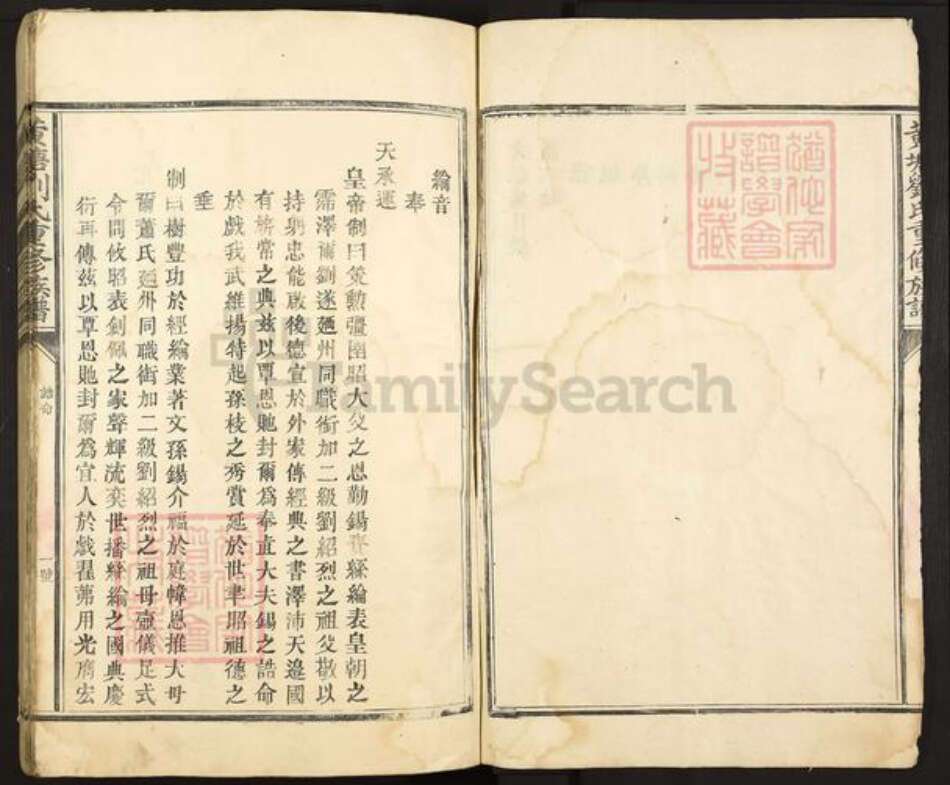 黃塘劉氏重修族譜
綸音
奉
天承運
皇帝制曰策勲彊圉昭大父之恩勤錫賚絲綸表皇朝之
霈澤爾劉遂廼州同職銜加二級劉紹烈之祖父敬以
持躬忠能啟後德宣於外家傳經典之書澤沛天邉國
有旂常之典兹以覃恩貤封爾爲奉直大夫錫之誥命
於戲我武維揚特起孫枝之秀賞延於世聿昭祖德之
垂
制曰樹豐功於經綸業著文孫錫介福於庭幃恩推大母
爾蕭氏廼州同職銜加二級劉紹烈之祖母壼儀足式
令問攸昭表劍佩之家聲輝流奕世播絲綸之國典慶
衍再傳兹以覃恩貤封爾爲宜人於戲翟茀用光膺宏
黃塘劉氏重修族譜
誥命
一號
FamilySearch